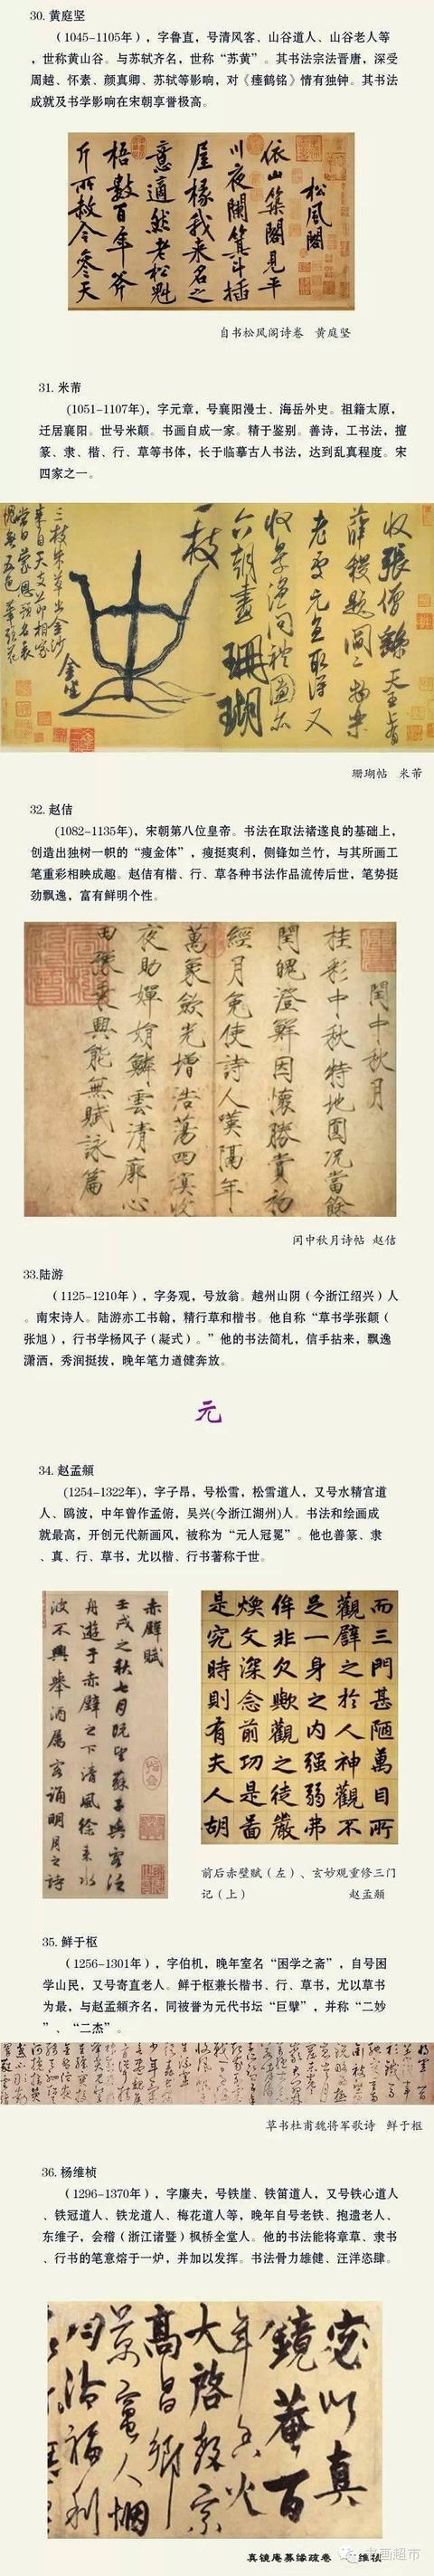 30. 黄庭坚
（1045-1105年），字鲁直，号清风客、山谷道人、山谷老人等
，世称黄山谷。与苏轼齐名，世称“苏黄”。其书法宗法晋唐，深受
周越、怀素、颜真卿、苏轼等影响，对《瘗鹤铭》情有独钟。其书法
成就及书学影响在宋朝享誉极高。
松風閣
依山築閣見平
川夜闌箕斗插
屋椽我来名之
意適然老松魁
梧數百年斧
斤所赦今參天
自书松风阁诗卷 黄庭坚
31. 米芾
(1051-1107年)，字元章，号襄阳漫士、海岳外史。祖籍太原，
迁居襄阳。世号米颠。书画自成一家。精于鉴别。善诗，工书法，擅
篆、隶、楷、行、草等书体，长于临摹古人书法，达到乱真程度。宋
四家之一。
收張僧繇天王上有
薛稷題閻二物樂
老處元直取得又
收景温問禮圖亦
六朝畫珊瑚
一枝
金坐
三枝朱草出金沙
来自天支節相家
當日蒙恩預名表
愧無五色筆頭花
珊瑚帖 米芾
32. 赵佶
(1082-1135年)，宋朝第八位皇帝。书法在取法褚遂良的基础上，
创造出独树一帜的“瘦金体”，瘦挺爽利，侧锋如兰竹，与其所画工
笔重彩相映成趣。赵佶有楷、行、草各种书法作品流传后世，笔势挺
劲飘逸，富有鲜明个性。
閏中秋月
桂彩中秋特地圓况當餘
閏魄澄鮮因懷勝賞初
經月免使詩人嘆隔年
萬象斂光增浩蕩四溟收
夜助嬋娟鱗雲清廓心
田豫乗興能無賦詠篇
闰中秋月诗帖 赵佶
33.陆游
（1125-1210年），字务观，号放翁。越州山阴（今浙江绍兴）人
。南宋诗人。陆游亦工书翰，精行草和楷书。他自称“草书学张颠（
张旭），行书学杨风子（凝式）。”他的书法简札，信手拈来，飘逸
潇洒，秀润挺拔，晚年笔力遒健奔放。
元
34. 赵孟頫
(1254-1322年)，字子昂，号松雪，松雪道人，又号水精宫道
人、鸥波，中年曾作孟俯，吴兴(今浙江湖州)人。书法和绘画成
就最高，开创元代新画风，被称为“元人冠冕”。他也善篆、隶
、真、行、草书，尤以楷、行书著称于世。
赤壁賦
壬戌之秋七月既望蘇子與客泛
舟遊于赤壁之下清風徐来水
波不興舉酒属客誦明月之詩
而三門甚陋萬目所
觀壁之於人神觀不
足一身之内强弱弗
侔非久歟觀之徒嚴
煥文深念前功是啚
是究時則有夫人胡
前后赤壁赋（左）、玄妙观重修三门
记（上） 赵孟頫
35. 鲜于枢
（1256-1301年），字伯机，晚年室名“困学之斋”，自号困
学山民，又号寄直老人。鲜于枢兼长楷书、行、草书，尤以草书
为最，与赵孟頫齐名，同被誉为元代书坛“巨擘”，并称“二妙
”、“二杰”。
草书杜甫魏将军歌诗 鲜于枢
36. 杨维桢
（1296-1370年），字廉夫，号铁崖、铁笛道人，又号铁心道人
、铁冠道人、铁龙道人、梅花道人等，晚年自号老铁、抱遗老人、
东维子，会稽（浙江诸暨）枫桥全堂人。他的书法能将章草、隶书
、行书的笔意熔于一炉，并加以发挥。书法骨力雄健、汪洋恣肆。
宓以真
鏡菴百
年香火
大啓教宗
高昌鄉
景寗人烟
均洽福利
真镜庵募缘疏卷 维桢
书画超市